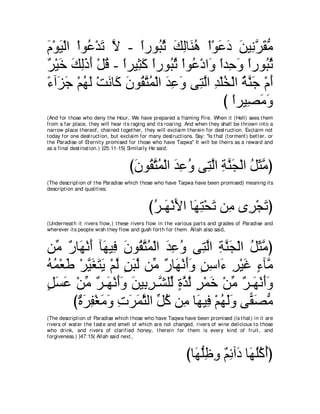 مُّقَرَّنِينَ دَعَوْا هُنَالِكَ ثُبُوراً - لاَّ تَدْعُواْ الْيَوْمَ
ثُبُوراً وَحِداً وَادْعُواْ ثُبُوراً كَثِيراً - قُلْ أَذلِكَ خَيْرٌ
أَمْ جَنَّةُ الْخُلْدِ الَّتِى وَعِدَ الْمُتَّقُونَ كَانَتْ لَهُمْ جَزَآءً
وَمَصِيراً )
(And for those who deny the Hour, We have prepared a flaming Fire. When it (Hell) sees them
from a far place, they will hear its raging and its roaring. And when they shall be thrown into a
narrow place thereof, chained together, they will exclaim therein for destruction. Exclaim not
today for one destruction, but exclaim for many destructions. Say: "Is that (torment) better, or
the Paradise of Eternity promised for those who have Taqwa" It will be theirs as a reward and
as a final destination.) (25:11-15) Similarly He said:
(مَّثَلُ الْجَنَّةِ الَّتِى وُعِدَ الْمُتَّقُونَ)
(The description of the Paradise which those who have Taqwa have been promised) meaning its
description and qualities;
(تَجْرِى مِن تَحْتِهَا الأَنْهَـرُ)
(Underneath it rivers flow,) these rivers flow in the various parts and grades of Paradise and
wherever its people wish they flow and gush forth for them. Allah also said,
(مَّثَلُ الْجَنَّةِ الَّتِى وُعِدَ الْمُتَّقُونَ فِيهَآ أَنْهَارٌ مِّن
مَّآءٍ غَيْرِ ءَاسِنٍ وَأَنْهَارٌ مِّن لَّبَنٍ لَّمْ يَتَغَيَّرْ طَعْمُهُ
وَأَنْهَـرٌ مِّنْ خَمْرٍ لَّذَّةٍ لِّلشَّـرِبِينَ وَأَنْهَـرٌ مِّنْ عَسَلٍ
مُّصَفًّى وَلَهُمْ فِيهَا مِن كُلِّ الثَّمَرَتِ وَمَغْفِرَةٌ)
(The description of Paradise which those who have Taqwa have been promised (is that) in it are
rivers of water the taste and smell of which are not changed, rivers of wine delicious to those
who drink, and rivers of clarified honey, therein for them is every kind of fruit, and
forgiveness.) )47:15( Allah said next,
(أُكُلُهَا دَآئِمٌ وِظِلُّهَا)